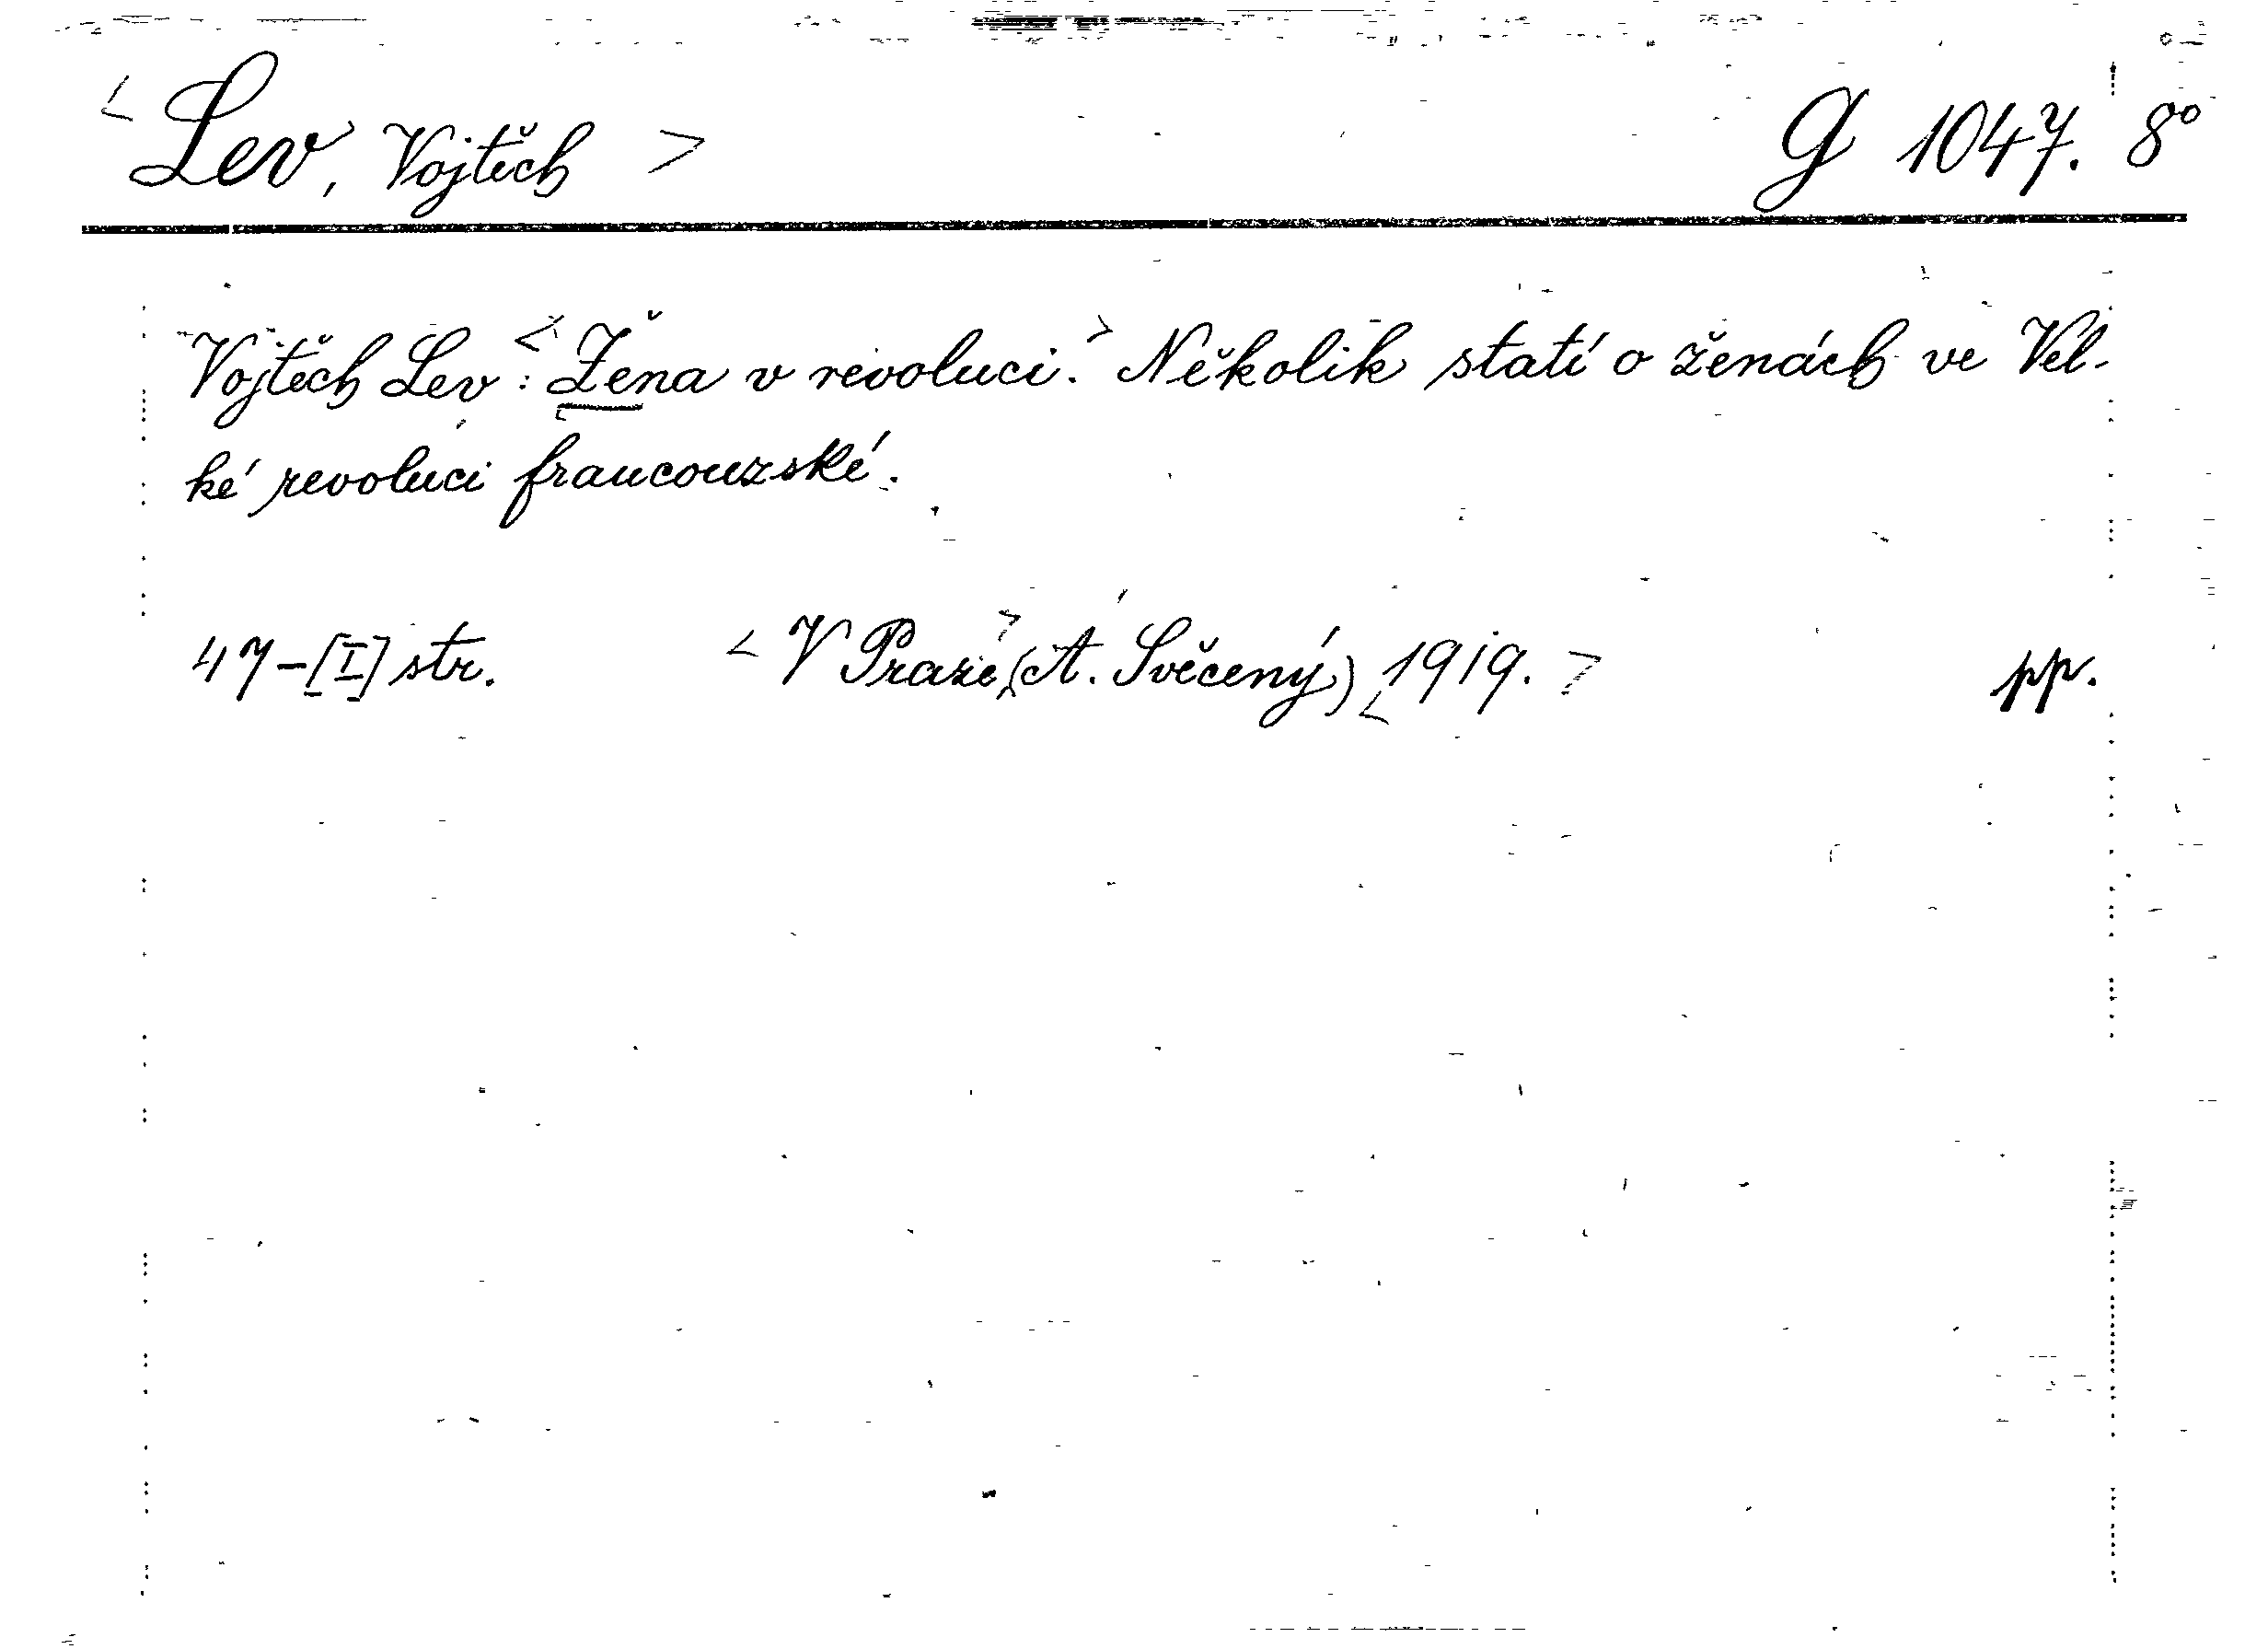 < Lev, Vojtěch > G 1047. 8°
Vojtěch Lev: <Žena v revoluci.> Několik statí o ženách ve Vel-
ké revoluci francouzské.
47-[I] str. < V Praze> (A. Svěcený) <1919. > pp.